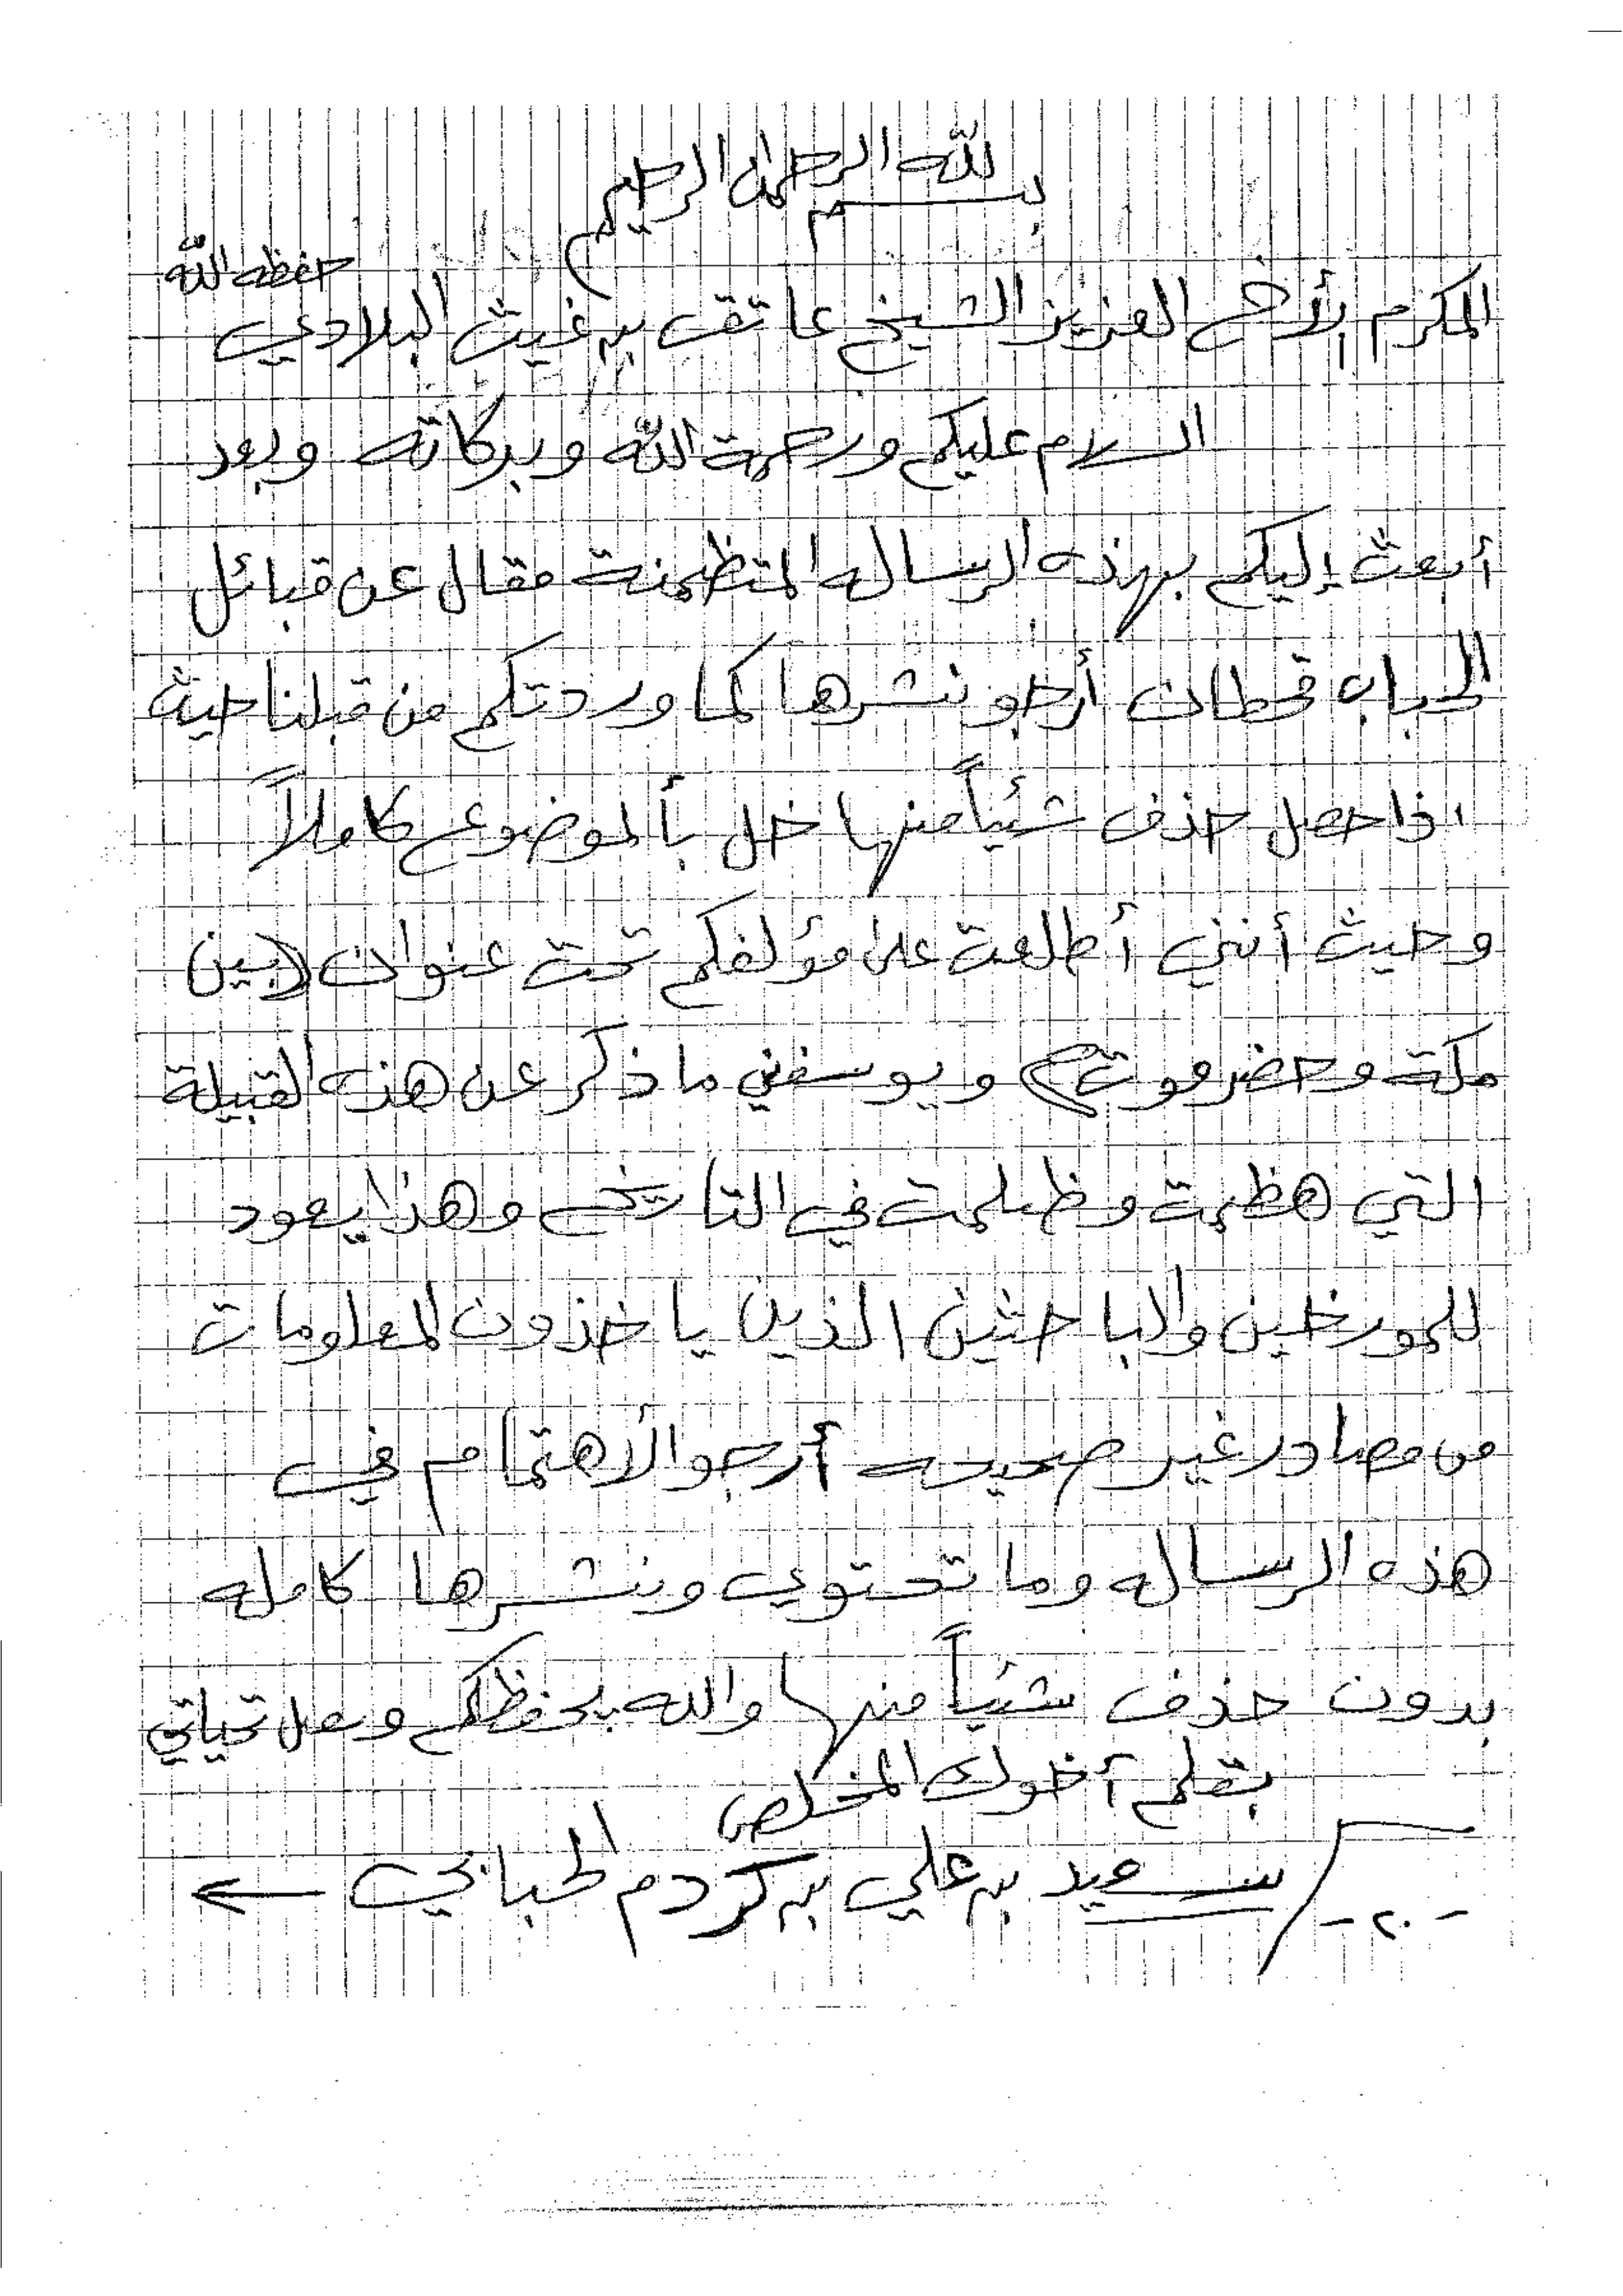 بسم الله الرحمن الرحيم
المكرم الأخ العزيز الشيخ عاتق بن غيث البلادي حفظه الله
السلام عليكم ورحمة الله وبركاته وبعد
أبعث إليكم بهذه الرساله المتظمنة مقال عن قبائل
الحباب قحطان أرجو نشرها كما وردتكم من قبلنا حيث
اذا حصل حذف شئياً منها خل بألموضوع كاملاً
وحيث أنني أطلعت على مؤلفكم تحت عنوان (بين
مكة وحضرموت) ويوسفني ما ذكر عن هذه القبيلة
التي هظمت وظلمت في التاريخ وهذا يعود
للمورخين والباحثين الذين ياخذون المعلومات
من مصادر غير صحيحه أرجو الأهتمام في
هذه الرساله وما تحتوي ونشرها كامله
بدون حذف شئياً منها والله يحفظكم وصل تحياتي
بقلم أخوك المخلص
سعيد بن علي بن كردم الحبابي ←
- ٢٠ -